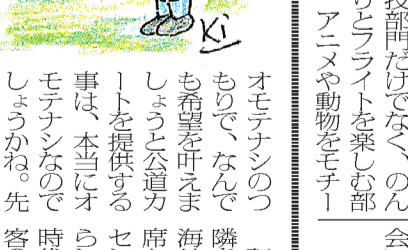 技部門だけでなく、のん
りとフライトを楽しむ部
アニメや動物をモチー
Ki
オモテナシのつ
もりで、なんで
も希望を叶えま
しょうと公道カ
ートを提供する
事は、本当にオ
モテナシなので
しょうかね。先